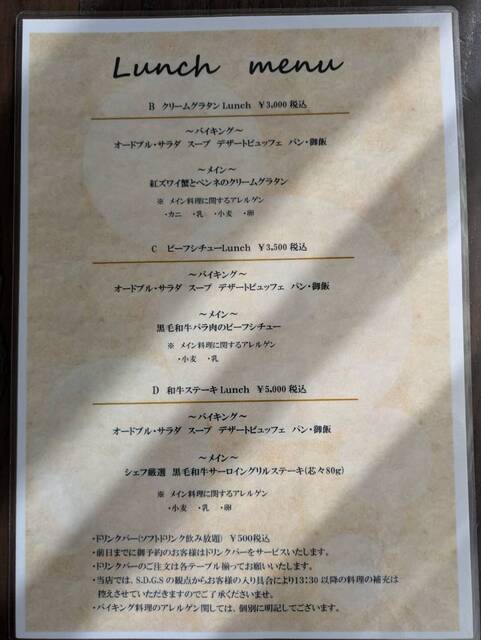 Lunch menu
B クリームグラタンLunch ￥3,000 税込
～バイキング～
オードブル・サラダ スープ デザートビュッフェ パン・御飯
～メイン～
紅ズワイ蟹とペンネのクリームグラタン
※ メイン料理に関するアレルゲン
・カニ ・乳 ・小麦 ・卵
C ビーフシチューLunch ￥3,500 税込
～バイキング～
オードブル・サラダ スープ デザートビュッフェ パン・御飯
～メイン～
黒毛和牛バラ肉のビーフシチュー
※ メイン料理に関するアレルゲン
・小麦 ・乳
D 和牛ステーキLunch ￥5,000 税込
～バイキング～
オードブル・サラダ スープ デザートビュッフェ パン・御飯
～メイン～
シェフ厳選 黒毛和牛サーロイングリルステーキ(芯々80g)
※ メイン料理に関するアレルゲン
・小麦 ・乳 ・卵
・ドリンクバー(ソフトドリンク飲み放題) ￥500税込
・前日までに御予約のお客様はドリンクバーをサービスいたします。
・ドリンクバーのご注文は各テーブル揃ってお願いいたします。
・当店では、S.D.G.Sの観点からお客様の入り具合により13:30以降の料理の補充は
控えさせていただきますのでご了承くださいませ。
・バイキング料理のアレルゲン関しては、個別に明記してございます。